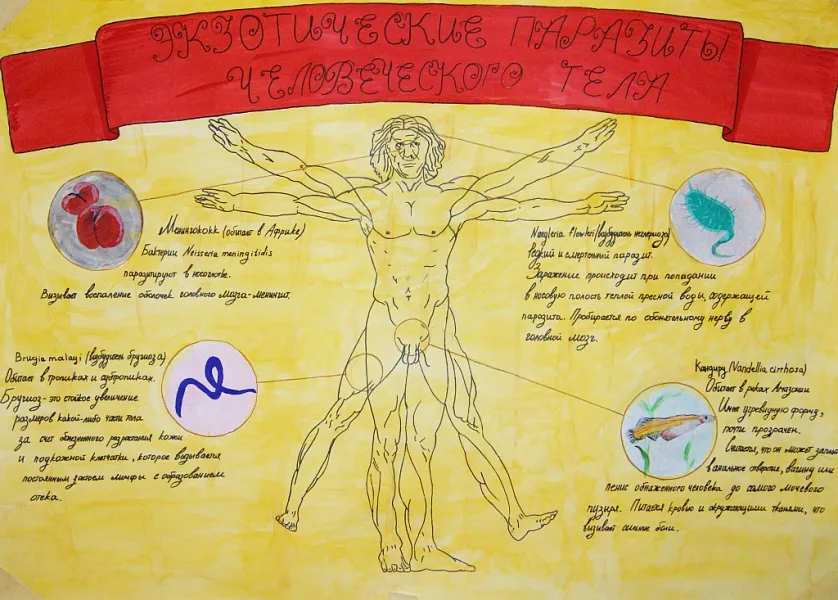 ЭКЗОТИЧЕСКИЕ ПАРАЗИТЫ
ЧЕЛОВЕЧЕСКОГО ТЕЛА
Менингококк (обитает в Африке)
Бактерии Neisseria meningitidis
паразитируют в носоглотке.
Вызывает воспаление оболочек головного мозга-менингит.
Naegleria flowkri (возбудитель неглериоза)
Редкий и смертельный паразит.
Заражение происходит при попадании
в носовую полость теплой пресной воды, содержащей
паразита. Пробирается по обонятельному нерву в
головной мозг.
Brugia malayi (возбудитель бругиоза)
Обитает в тропиках и субтропиках.
Бругиоз- это стойкое увеличение
размеров какой-либо части тела
за счет болезненного разрастания кожи
и подкожной клетчатки, которое вызывается
постоянным застоем лимфы с образованием
отека.
Кандиру (Vandellia cirrhosa)
Обитает в реках Амазонии
Имеет угревидную форму,
почти прозрачен.
Считается, что он может заплы
в анальное отверстие, вагину или
пенис обнаженного человека до самого мочевого
пузыря. Питается кровью и окружающими тканями, что
вызывает сильные боли.